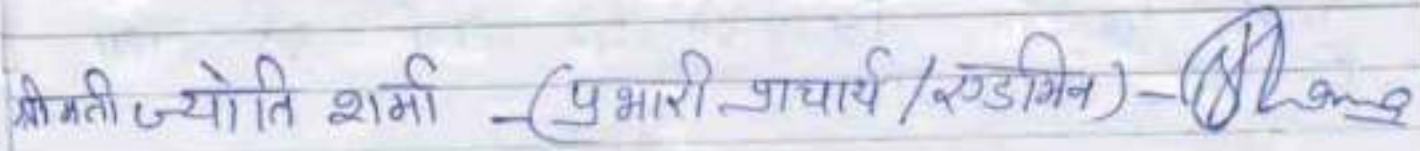 श्रीमती ज्योति शर्मा - (प्रभारी प्राचार्य / एडमिन) -